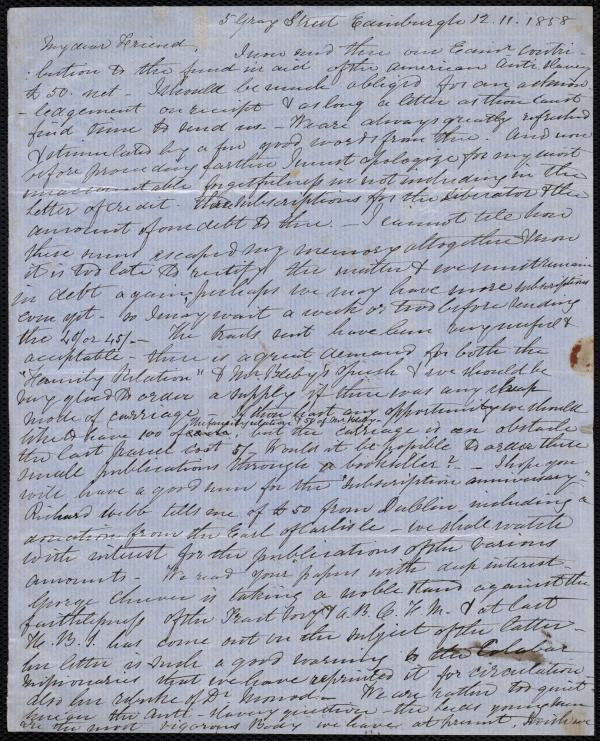 5 Gray Street Edinburgh 12.11.1858
My dear Friend,
I now send thee our Edinr. contri-
bution to the fund in aid of the American Anti Slavery
£50. net. I should be much obliged for an acknow-
-ledgement on receipt & as long a letter as thou canst
find time to send us - We are always greatly refreshed
& stimulated by a few good words from thee. And now
before proceeding farther I must apologize for my most
unaccountable forgetfulness in not including in the
letter of credit the subscriptions for the Liberator & the
amount of our debt to thee. - I cannot tell how
these sums escaped my memory altogether & now
it is too late to rectify the matter & we must remain
in debt again, perhaps we may have more subscriptions
come yet. so I may wait a week or two before sending
the 40/ or 45/- The tracts sent have been very useful &
acceptable - there is a great demand for both the
"Family Relation" & Mr Bleby's Speech & we should be
very glad to order a supply if there was any cheap
mode of carriage - If thou hast any opportunity we should
like to have 100 of the family relation & 50 of Mr Bleby, but the carriage is an obstacle
the last parcel cost 5/. Would it be possible to order these
small publications through a bookseller? - I hope you
will have a good sum for the "Subscription anniversary"
Richard Webb tells me of £50 from Dublin including a
donation from the Earl of Carlisle - we shall watch
with interest for the publications of the various
amounts - We read your papers with deep interest.
George Cheever is taking a noble stand against the
faithlessness of the Tract Socy & A.B.C.F.M. & at last
H.B.S. has come out on the subject of the latter -
her letter is such a good warning to the
missionaries that we have reprinted it for circulation
also her rebuke of Dr Monod. - We are rather too quiet
here on the Anti-Slavery question - the Leeds young men
are the most vigorous Body we have at present,